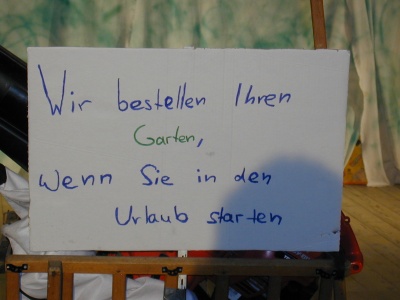 Wir bestellen Ihren
Garten,
wenn Sie in den
Urlaub starten